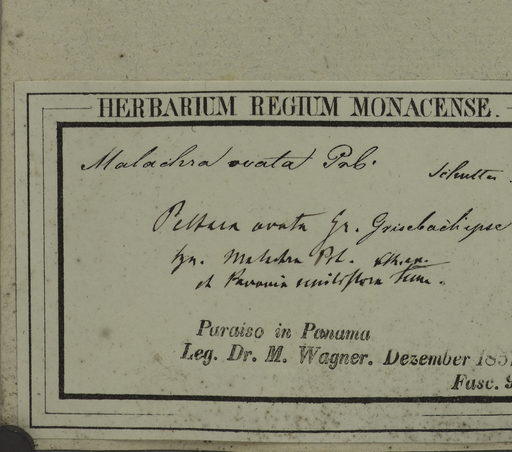 HERBARIUM REGIUM MONACENSE.
Malachra ovata
Peltaea ovata Gr. Grisebach ipse
Syn. Malachra
et Pavonia
Paraiso in Panama
Leg. Dr. M. Wagner. Dezember 185
Fasc. 9